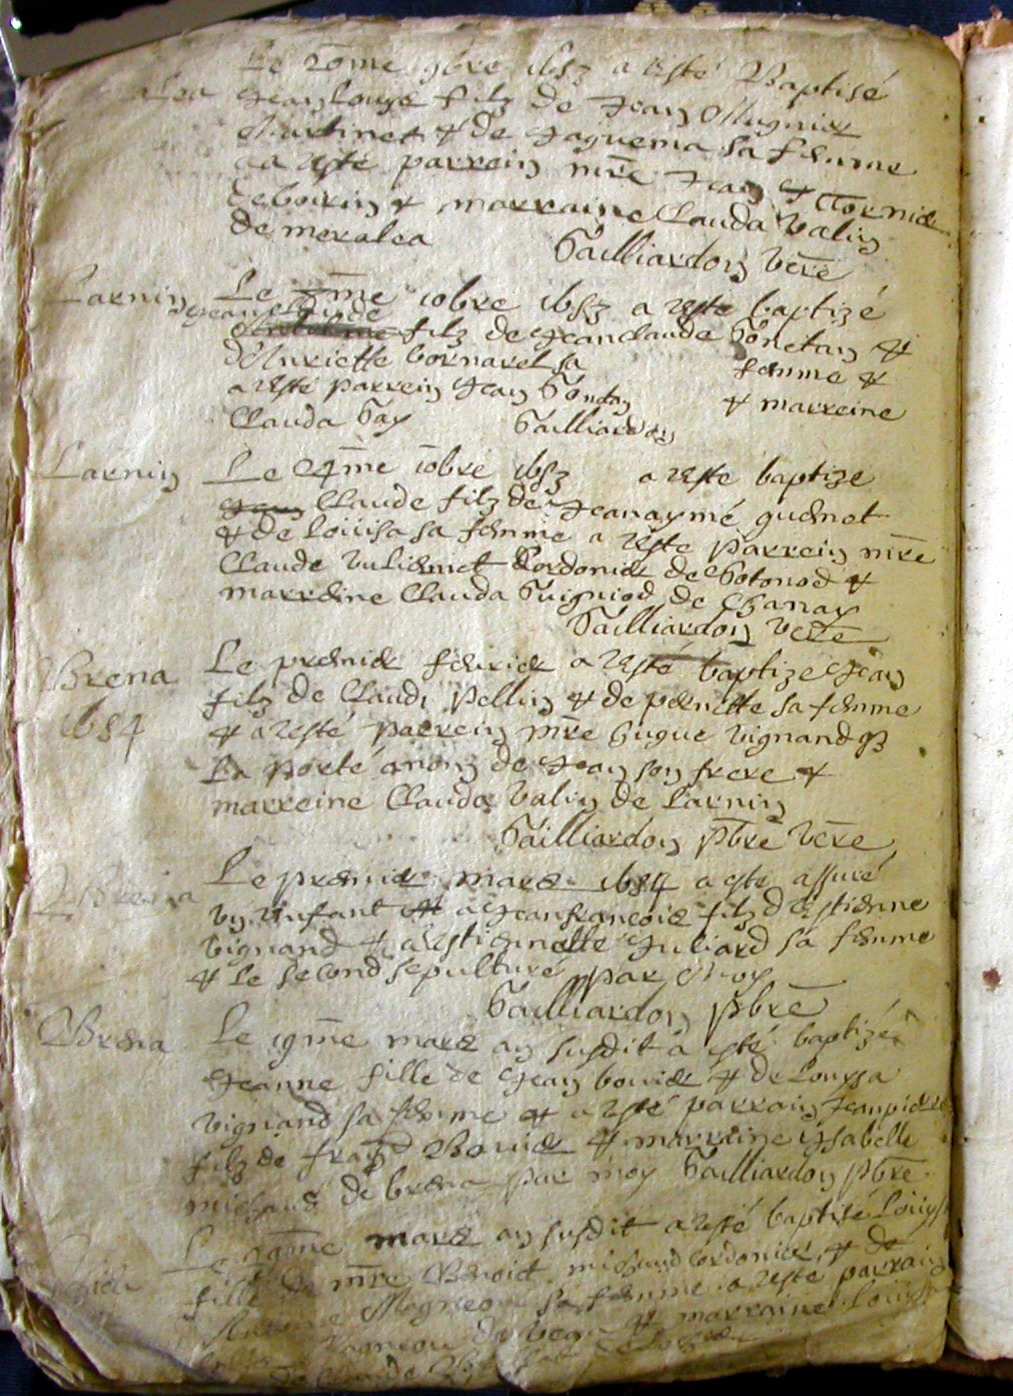 Le 9bre 1683 a esté Baptisé
Jeanlouys filz de Jean Mugnier
Martinet & de Jaquema sa femme
a esté parrein mre Jean
& marraine Clauda Valin
de meralea
Gailliardon vere
Larnin Le me 10bre 1683 a esté baptizé
Jeanclaude
filz de Jeanclaude Gonetan &
d'Anriette bornarel sa femme &
a esté parrein Jean Gontay & marreine
Clauda Gay Gailliardon
Larnin Le 4me 10bre 1683 a esté baptize
Jean Claude filz de Jeanaymé guenot
& de Louisa sa femme a este parrein mre
Claude Cordonier de Hotonod &
marreine Clauda Guigniod de Chanay
Gailliardon vere
Brena Le premier febvrier a esté baptize Jean
1684 filz de Claude Pellin & de pernette sa femme
& a esté parrein mre hugue vignand qz
La porté a nom de Jean son frere &
marreine Clauda Valin de Larnin
Gailliardon pbre vere
Breina Le premier mars 1684 a este assuré
un Anfant a Jeanfrancois filz d'Estienne
vignand & a Estiennette Juliard sa femme
& le second sepulturé par Moy
Gailliardon pbre
Brena Le 19me mars an susdit a esté baptizé
Jeanne fille de Jean bouier & de Louysa
vignand sa femme & a esté parrain Jeanpierre
filz de franc Bouier & marraine ysabelle
michaud de brena par moy Gailliardon pbre
Le mars an susdit a esté baptisé Louys
fille de mre Benoict michaud cordonier & de
sa femme a este parrain
& marraine Louysa
de Claude